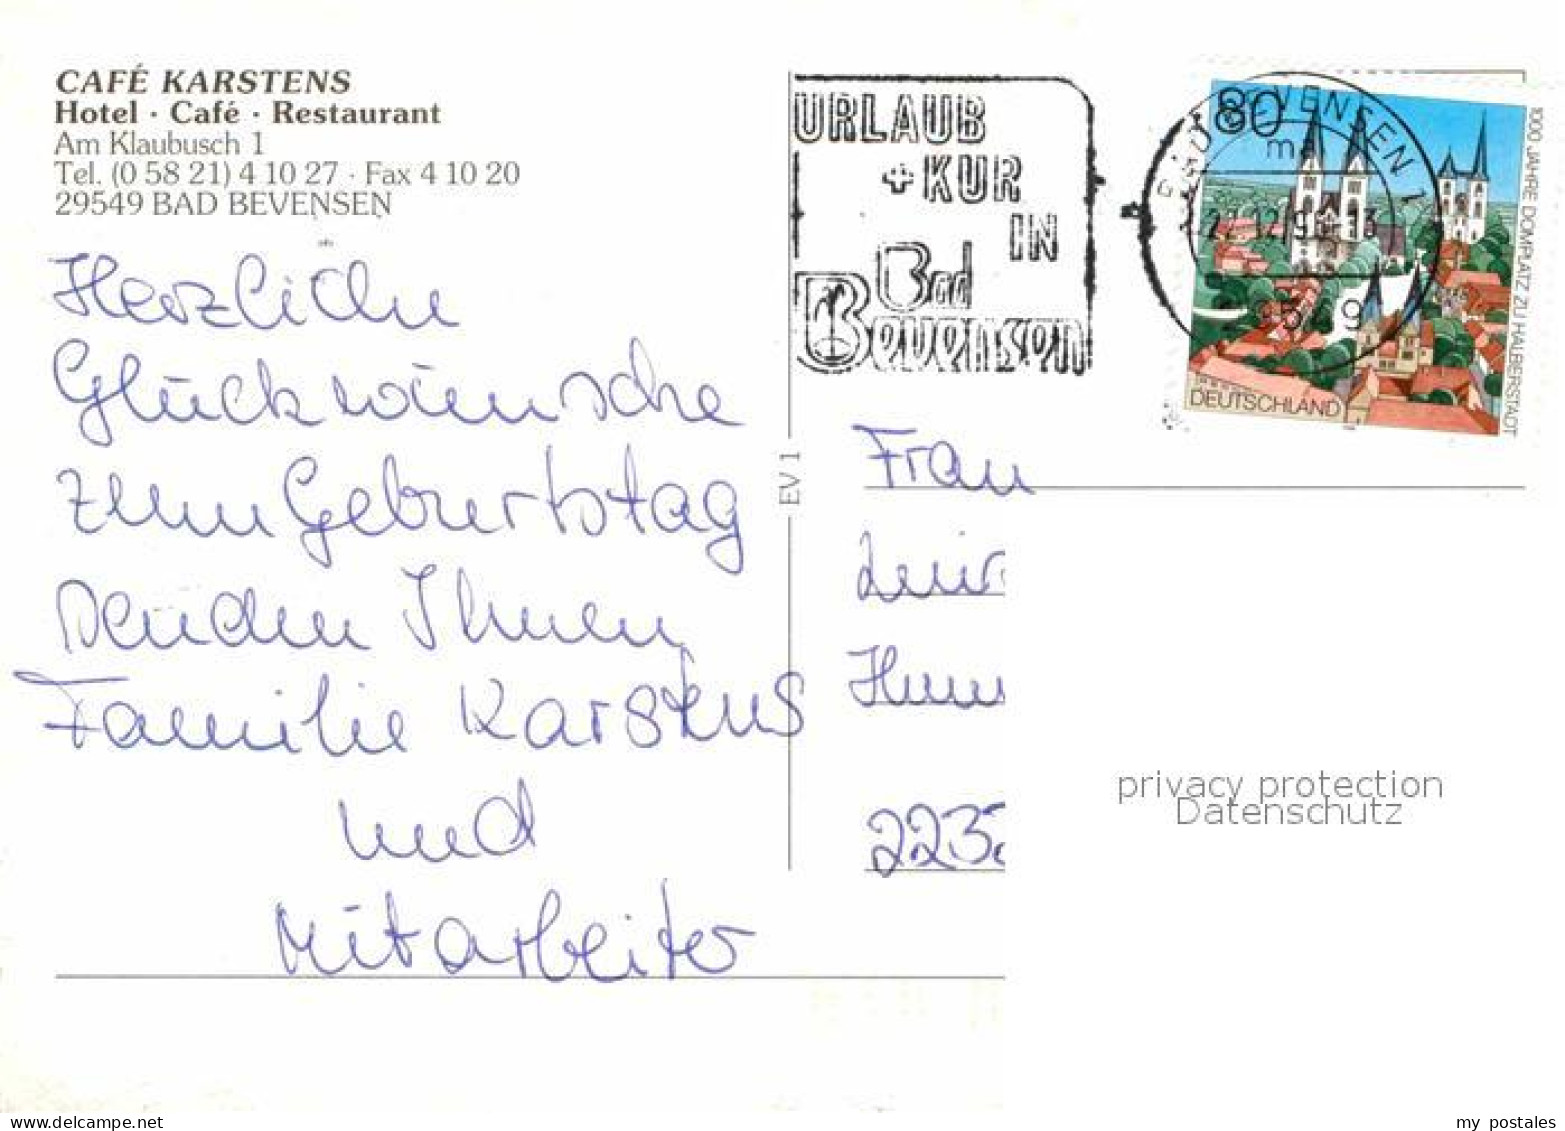 CAFÉ KARSTENS
Hotel · Café · Restaurant
Am Klaubusch 1
Tel. (0 58 21) 4 10 27 · Fax 4 10 20
29549 BAD BEVENSEN
Herzliche
Glückwünsche
zum Geburtstag
senden Ihnen
Familie Karstens
und
Mitarbeiter
EV 1
URLAUB
+KUR
IN
Bad
Bevensen
BAD BEVENSEN 1
80
DEUTSCHLAND
1000 JAHRE DOMPLATZ ZU HALBERSTADT
Frau
privacy protection
Datenschutz
my postales